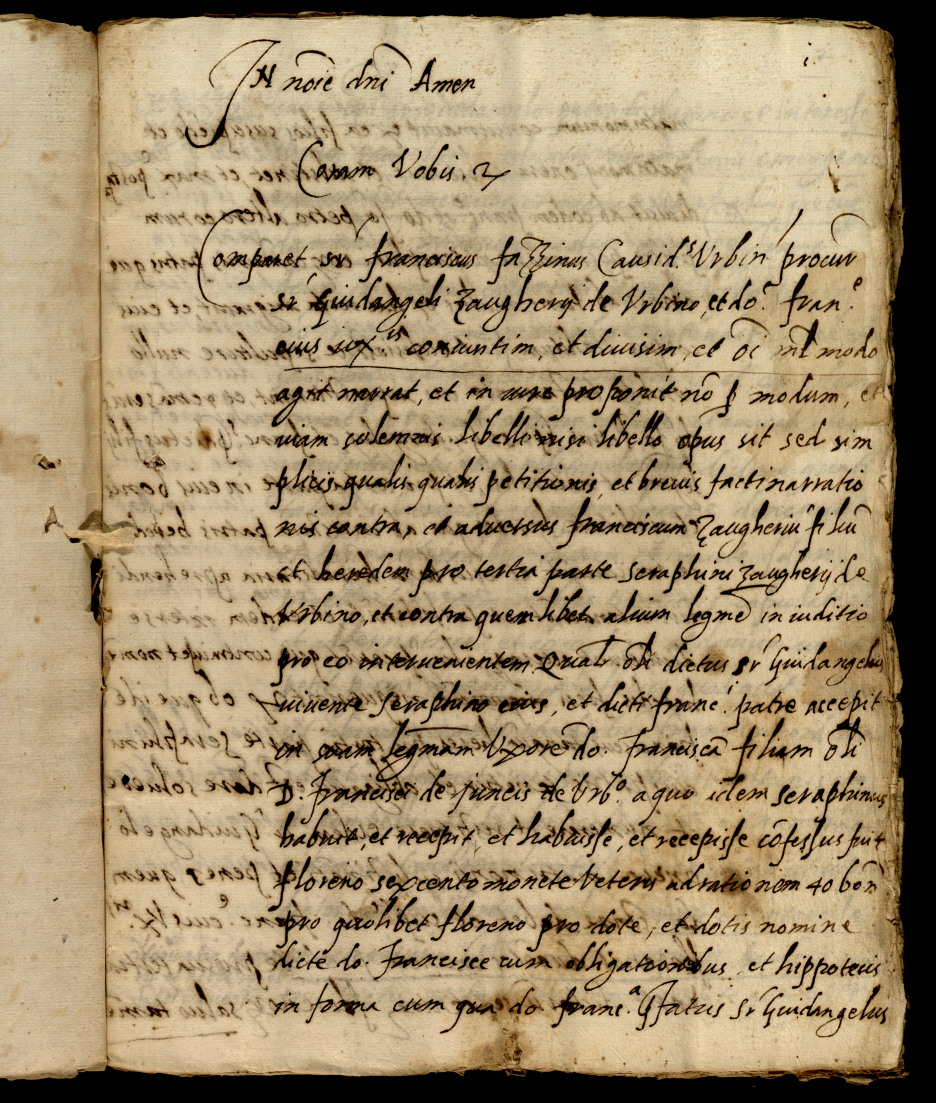 i
In nōie dn̄i Amen
Coram Vobis
Comparet sr̄ franciscus fazzinus Causid.s Vrbin procur
sr̄ Guidangeli Zaugherij de Vrbino, et do.e fran.e
eius uxis coniuntim, et diuisim, et oī mł modo
agit narrat, et in iure proponit nō p modum, et
uiam solemnis libelli nisi libello opus sit sed sim
plicis qualis qualis petitionis, et breuis facti narratio
nis contra, et aduersus franciscum Zaugheriū filiū
et heredem pro tertia parte seraphini Zaugherij de
Vrbino, et contra quemlibet alium legmē in iuditio
pro eo interuenientem Qualr olī dictus sr̄ Guidangelus
uiuente seraphino eius, et dicti franc.i patre accepit
in suam legmam Vxorē do. Franciscā filiam olī
D. Francisci de Juncis de Vrb.o a quo idem seraphinus
habuit, et recepit, et habuisse, et recepisse cōfessus fuit
floreno sexcento monete Veteris ad rationem 40 bon
pro quolibet floreno pro dote, et dotis nomine
dicte do. Francisce cum obligationibus, et hippotecis
in forma cum qua do. franc.a pfatus sr̄ Guidangelus